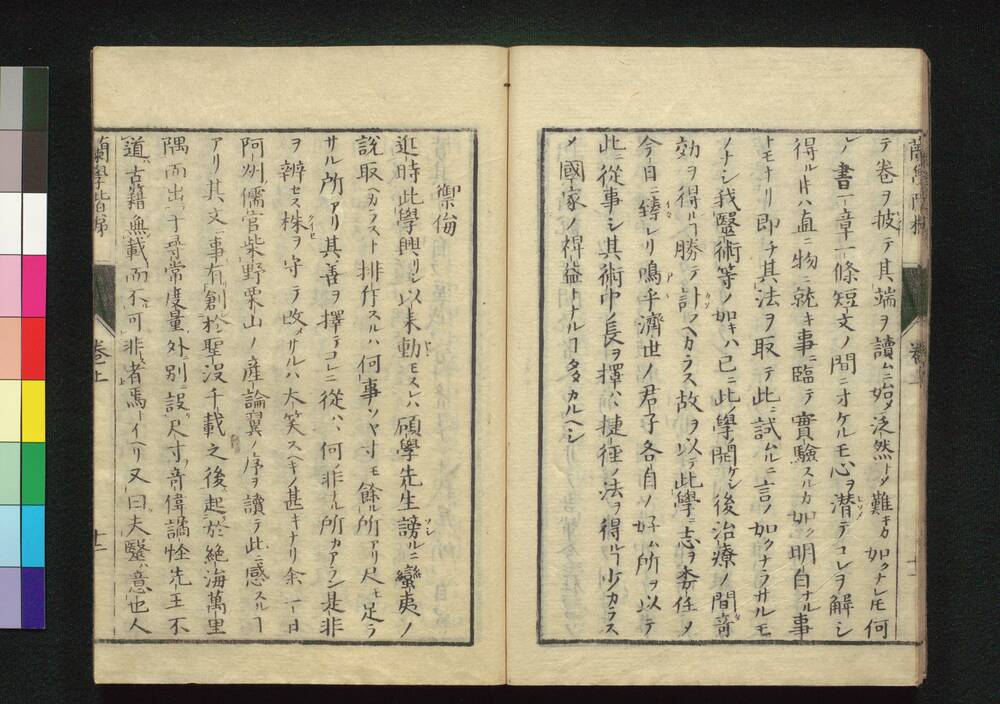 テ卷ヲ披テ其端ヲ讀ムニ始メ泛然トメ難キカ如クナレモ何
レノ書一章一條短文ノ間ニオケルモ心ヲ潜テコレヲ解シ
得ルトキハ直ニ物ニ就キ事ニ臨テ實驗スルカ如ク明白ナル事
トモナリ即チ其法ヲ取テ此ニ試ムルニ言ノ如クナラサルモ
ノナシ我醫術等ノ如キハ已ニ此ノ學開ケシ後治療ノ間竒
効ヲ得ルヿ勝テ計ヘカラス故ヲ以テ此學ニ志ヲ委任メ
今日ニ臻レリ嗚乎濟世ノ君子各自ノ好ム所ヲ以テ
此ニ從事シ其術中ノ長ヲ擇ハ捷徑ノ法ヲ得ルヿ少カラス
メ國家ノ裨益トナルヿ多カルヘシ
蘭學階梯 卷上
禦侮
近時此學興リシ以来動モスレハ頑學先生謗ルニ蠻夷ノ
説取ヘカラスト排斥スルハ何事ソヤ寸モ餘ル所アリ尺モ足ラ
サル所アリ其善ヲ擇テコレニ從ハヽ何ノ非ナル所カアラン是非
ヲ辨セス株ヲ守テ改メサルハ大笑スヘキノ甚キナリ余一日
阿州儒官柴野栗山ノ産論翼ノ序ヲ讀テ此ニ感スルヿ
アリ其文ニ事有創於聖沒千載之後起於絶海萬里
隅而出于尋常度量外別設尺寸竒偉譎恠先王不
道古籍無載而不可非者焉トイヘリ又曰夫醫意也人
蘭學階梯 卷上 十二